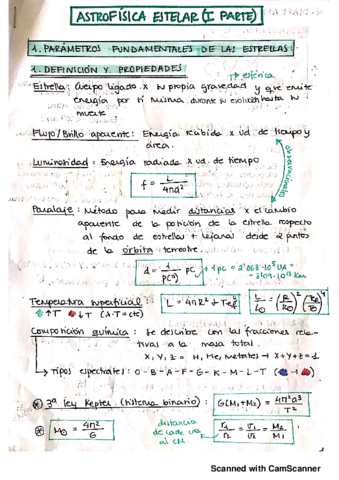 ASTROFÍSICA ESTELAR (I PARTE)
1. PARÁMETROS FUNDAMENTALES DE LAS ESTRELLAS
1. DEFINICIÓN Y PROPIEDADES
esférica
Estrella: Cuerpo ligado x su propia gravedad y que emite
energía por sí misma durante su evolución hasta su
muerte
Flujo/Brillo aparente: Energía recibida x ud. de tiempo y
área.
Luminosidad: Energía radiada x ud. de tiempo
observacionales
f = L / 4πd²
Paralaje: Método para medir distancias x el cambio
aparente de la posición de la estrella respecto
al fondo de estrellas + lejanas desde 2 puntos
de la órbita terrestre.
d = 1 / p(") pc
Temperatura superficial:
↑T ↓T (λ·T=cte)
Composición química: se describe con las fracciones rela-
tivas a la masa total.
X, Y, Z = H, He, Metales → X+Y+Z=1
→ Tipos espectrales: O-B-A-F-G-K-M-L-T
3ª ley Kepler (sistema binario): G(M₁+M₂) = 4π²a³ / T²
M⊙ = 4π² / G
distancia
de cada una
al CM.
r₁/r₂ = v₁/v₂ = M₂/M₁
Scanned with CamScanner